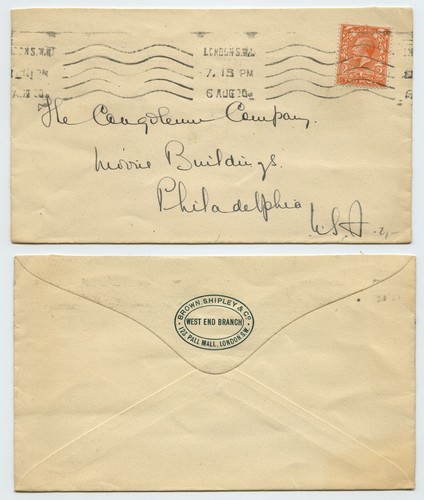 LONDON.S.W.1
7. 15 PM
6 AUG 20
The Congoleum Company.
Morris Buildings.
Philadelphia
U.S.A.
BROWN, SHIPLEY & Co.
WEST END BRANCH
123 PALL MALL, LONDON.S.W.